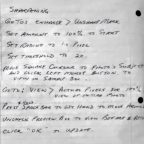 SHARPENING
GO TO: ENHANCE > UNSHARP MASK
SET AMOUNT TO 100% TO START
SET RADIUS TO 1 PIXEL
SET THRESHOLD TO 20
MOVE SQUARE CURSOR TO POINT OF
AND CLICK LEFT MOUSE BUTTON, TO
IN SAMPLE BOX
GO TO: VIEW > ACTUAL PIXELS FOR 100%
VIEW OF ENTIRE PHOTO
PRESS SPACE BAR TO GET HAND TO MOVE AROUND
UNCHECK PREVIEW BOX TO VIEW BEFORE &
CLICK "OK" TO UPDATE.